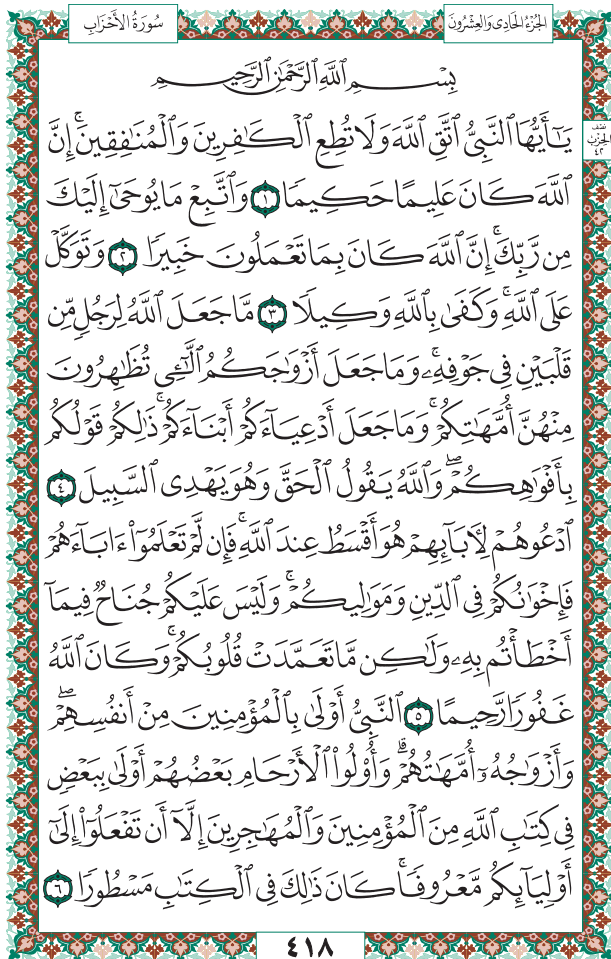 الجُزْءُ الحَادِى وَالعِشْرُونَ
سُورَةُ الأَحْزَابِ
بِسْمِ ٱللَّهِ ٱلرَّحْمَٰنِ ٱلرَّحِيمِ
يَـٰٓأَيُّهَا ٱلنَّبِىُّ ٱتَّقِ ٱللَّهَ وَلَا تُطِعِ ٱلْكَـٰفِرِينَ وَٱلْمُنَـٰفِقِينَۚ إِنَّ
نصف
الحزب
٤٢
ٱللَّهَ كَانَ عَلِيمًا حَكِيمًا ١ وَٱتَّبِعْ مَا يُوحَىٰٓ إِلَيْكَ
مِن رَّبِّكَۚ إِنَّ ٱللَّهَ كَانَ بِمَا تَعْمَلُونَ خَبِيرًا ٢ وَتَوَكَّلْ
عَلَى ٱللَّهِۚ وَكَفَىٰ بِٱللَّهِ وَكِيلًا ٣ مَّا جَعَلَ ٱللَّهُ لِرَجُلٍ مِّن
قَلْبَيْنِ فِى جَوْفِهِۦۚ وَمَا جَعَلَ أَزْوَٰجَكُمُ ٱلَّـٰٓـِٔى تُظَـٰهِرُونَ
مِنْهُنَّ أُمَّهَـٰتِكُمْۚ وَمَا جَعَلَ أَدْعِيَآءَكُمْ أَبْنَآءَكُمْۚ ذَٰلِكُمْ قَوْلُكُم
بِأَفْوَٰهِكُمْۖ وَٱللَّهُ يَقُولُ ٱلْحَقَّ وَهُوَ يَهْدِى ٱلسَّبِيلَ ٤
ٱدْعُوهُمْ لِـَٔابَآئِهِمْ هُوَ أَقْسَطُ عِندَ ٱللَّهِۚ فَإِن لَّمْ تَعْلَمُوٓا۟ ءَابَآءَهُمْ
فَإِخْوَٰنُكُمْ فِى ٱلدِّينِ وَمَوَٰلِيكُمْۚ وَلَيْسَ عَلَيْكُمْ جُنَاحٌ فِيمَآ
أَخْطَأْتُم بِهِۦ وَلَـٰكِن مَّا تَعَمَّدَتْ قُلُوبُكُمْۚ وَكَانَ ٱللَّهُ
غَفُورًا رَّحِيمًا ٥ ٱلنَّبِىُّ أَوْلَىٰ بِٱلْمُؤْمِنِينَ مِنْ أَنفُسِهِمْۖ
وَأَزْوَٰجُهُۥٓ أُمَّهَـٰتُهُمْۗ وَأُو۟لُوا۟ ٱلْأَرْحَامِ بَعْضُهُمْ أَوْلَىٰ بِبَعْضٍ
فِى كِتَـٰبِ ٱللَّهِ مِنَ ٱلْمُؤْمِنِينَ وَٱلْمُهَـٰجِرِينَ إِلَّآ أَن تَفْعَلُوٓا۟ إِلَىٰٓ
أَوْلِيَآئِكُم مَّعْرُوفًاۚ كَانَ ذَٰلِكَ فِى ٱلْكِتَـٰبِ مَسْطُورًا ٦
٤١٨